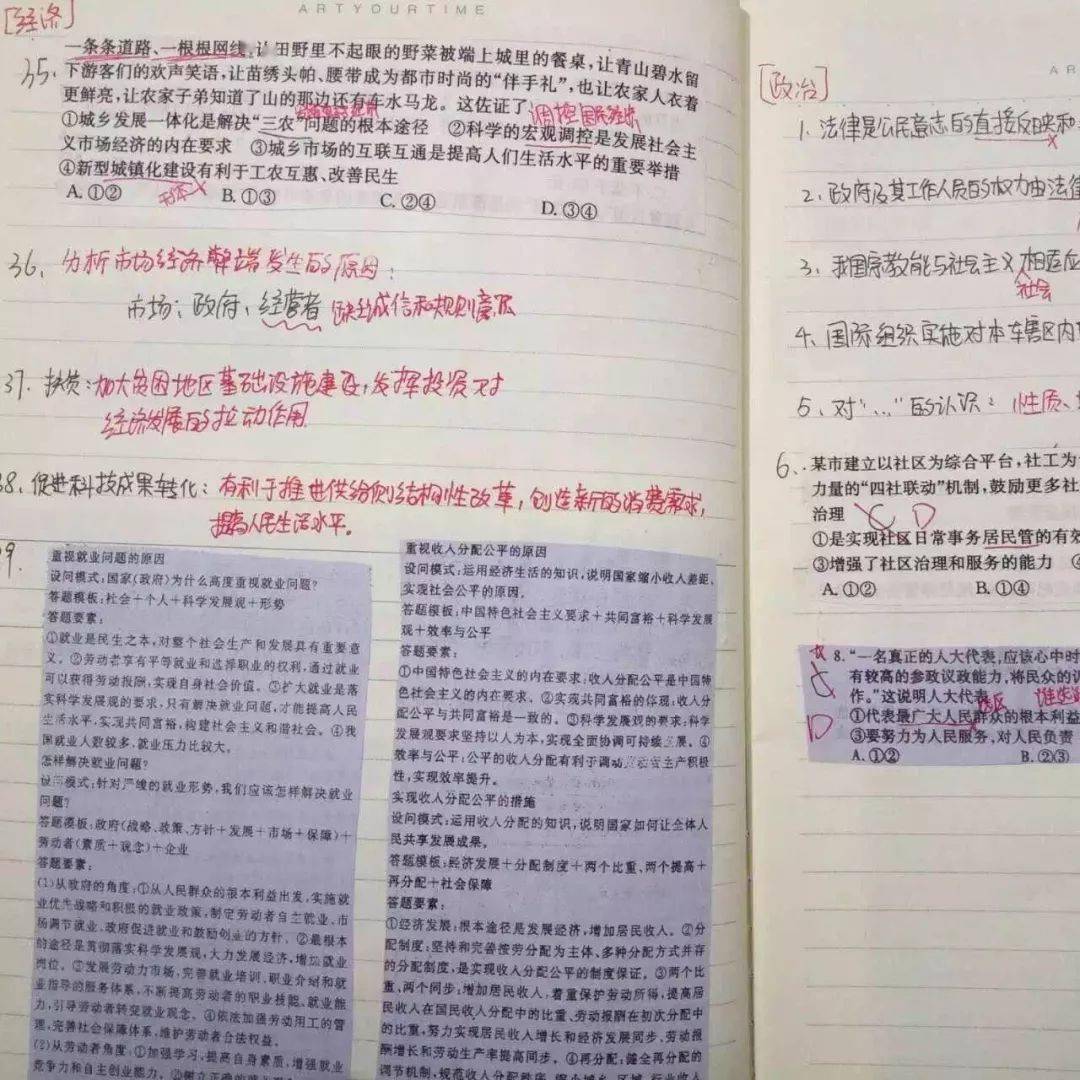 [经济]
ARTYOURTIME
35.
一条条道路、一根根网线,让田野里不起眼的野菜被端上城里的餐桌,让青山碧水留
下游客们的欢声笑语,让苗绣头帕、腰带成为都市时尚的“伴手礼”,也让农家人衣着
更鲜亮,让农家子弟知道了山的那边还有车水马龙。这佐证了
调控国民经济
①城乡发展一体化是解决“三农”问题的根本途径 ②科学的宏观调控是发展社会主
义市场经济的内在要求 ③城乡市场的互联互通是提高人们生活水平的重要举措
④新型城镇化建设有利于工农互惠、改善民生
A.①② B.①③ C.②④ D.③④
36、分析市场经济弊端发生的原因:
市场;政府;经营者 缺乏诚信和规则意识
37.扶贫:加大贫困地区基础设施建设,发挥投资对
经济发展的拉动作用
38.促进科技成果转化:有利于推进供给侧结构性改革,创造新的消费需求,
提高人民生活水平。
9.
重视就业问题的原因
设问模式:国家(政府)为什么高度重视就业问题?
答题模板:社会+个人+科学发展观+形势
答题要素:
①就业是民生之本,对整个社会生产和发展具有重要意
义。②劳动者享有平等就业和选择职业的权利,通过就业
可以获得劳动报酬,实现自身社会价值。③扩大就业是落
实科学发展观的要求,只有解决就业问题,才能提高人民
生活水平,实现共同富裕,构建社会主义和谐社会。④我
国就业人数较多,就业压力比较大。
怎样解决就业问题?
设问模式:针对严峻的就业形势,我们应该怎样解决就业
问题?
答题模板:政府(战略、政策、方针+发展+市场+保障)+
劳动者(素质+观念)+企业
答题要素:
(1)从政府的角度:①从人民群众的根本利益出发,实施就
业优先战略和积极的就业政策,制定劳动者自主就业、市
场调节就业、政府促进就业和鼓励创业的方针。②最根本
的途径是贯彻落实科学发展观,大力发展经济,增加就业
岗位。③发展劳动力市场,完善就业培训、职业介绍和就
业指导的服务体系,不断提高劳动者的职业技能、就业能
力,引导劳动者转变就业观念。④依法加强劳动用工的管
理,完善社会保障体系,维护劳动者合法权益。
(2)从劳动者角度:①加强学习,提高自身素质,增强就业
竞争力和自主创业能力。②树立正确的
重视收入分配公平的原因
设问模式:运用经济生活的知识,说明国家缩小收入差距、
实现社会公平的原因。
答题模板:中国特色社会主义要求+共同富裕+科学发展
观+效率与公平
答题要素:
①中国特色社会主义的内在要求:收入分配公平是中国特
色社会主义的内在要求。②实现共同富裕的体现:收入分
配公平与共同富裕是一致的。③科学发展观的要求:科学
发展观要求坚持以人为本,实现全面协调可持续发展。④
效率与公平:公平的收入分配有利于调动劳动者生产积极
性,实现效率提升。
实现收入分配公平的措施
设问模式:运用收入分配的知识,说明国家如何让全体人
民共享发展成果。
答题模板:经济发展+分配制度+两个比重、两个提高+
再分配+社会保障
答题要素:
①经济发展:根本途径是发展经济,增加居民收入。②分
配制度:坚持和完善按劳分配为主体、多种分配方式并存
的分配制度,是实现收入分配公平的制度保证。③两个比
重、两个同步:增加居民收入,着重保护劳动所得,提高居
民收入在国民收入分配中的比重、劳动报酬在初次分配中
的比重,努力实现居民收入增长和经济发展同步、劳动报
酬增长和劳动生产率提高同步。④再分配:健全再分配的
调节机制,规范收入分配秩序,缩小城乡、区域、行业收入
AR
[政治]
1.法律是公民意志的直接反映和
2.政府及其工作人员的权力由法律
3.我国宗教能与社会主义相适应
社会
4、国际组织实施对本车辖区内
5、对“…”的认识:性质、
6.某市建立以社区为综合平台,社工为
力量的“四社联动”机制,鼓励更多社
治理 C D
①是实现社区日常事务居民管的有效
③增强了社区治理和服务的能力
A.①② B.①④
8.“一名真正的人大代表,应该心中时
有较高的参政议政能力,将民众的
作。”这说明人大代表
选区
①代表最广大人民群众的根本利益
③要努力为人民服务、对人民负责
A.①② B.②③
D